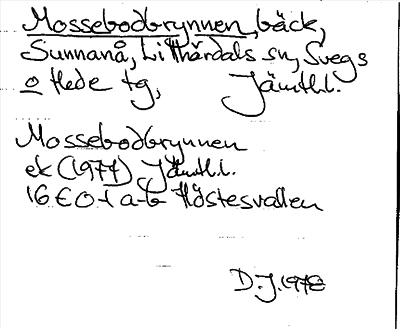 Mossebodbrynnen, bäck,
Sunnanå, Lillhärdals sn, Svegs
o Hede tg, Jämtl.l.
Mossebodbrynnen
ek (1977) Jämtl.l.
16E0f a-b Höstesvallen
D.J. 1978